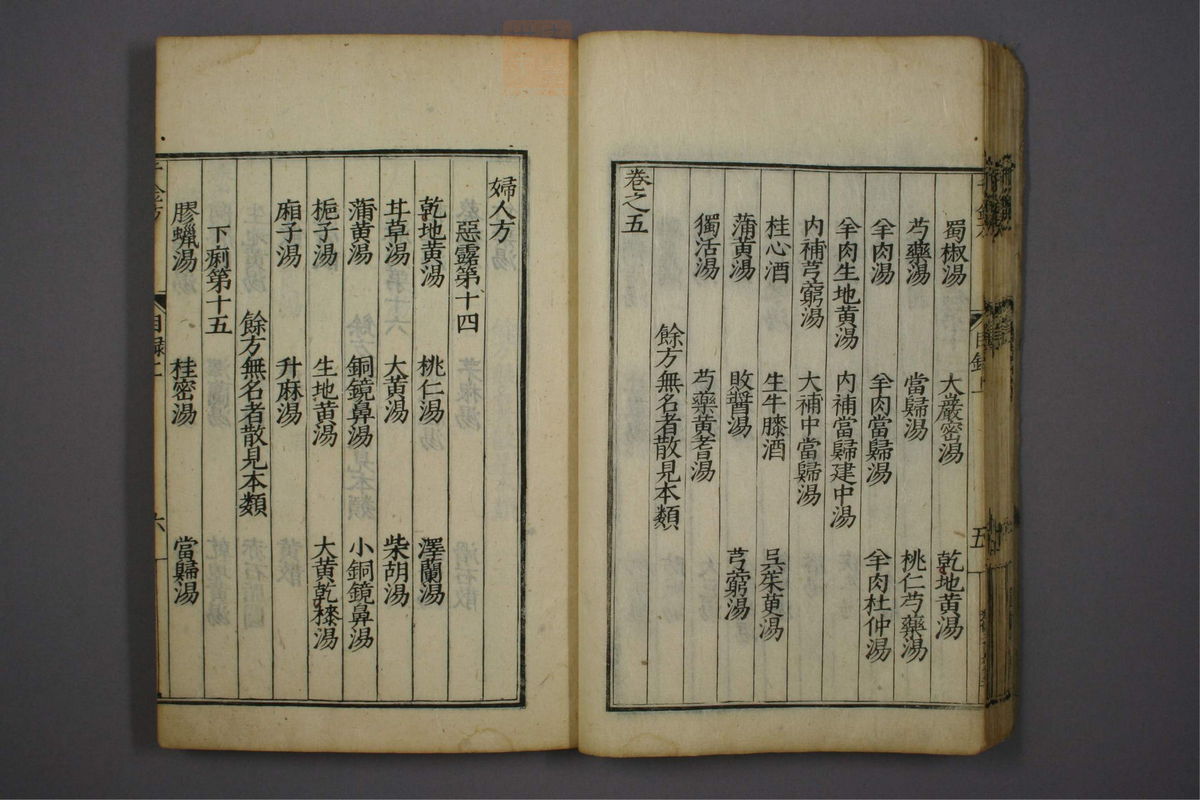 蜀椒湯 大巖密湯 乾地黄湯
芍藥湯 當歸湯 桃仁芍藥湯
羊肉湯 羊肉當歸湯 羊肉杜仲湯
羊肉生地黄湯 内補當歸建中湯
内補芎藭湯 大補中當歸湯
桂心酒 生牛膝酒 吳茱萸湯
蒲黄湯 敗醬湯 芎藭湯
獨活湯 芍藥黄耆湯
餘方無名者散見本類
卷之五
婦人方
惡露第十四
乾地黄湯 桃仁湯 澤蘭湯
甘草湯 大黄湯 柴胡湯
蒲黄湯 銅鏡鼻湯 小銅鏡鼻湯
梔子湯 生地黄湯 大黄乾漆湯
廂子湯 升麻湯
餘方無名者散見本類
下痢第十五
膠蠟湯 桂密湯 當歸湯
目録 六